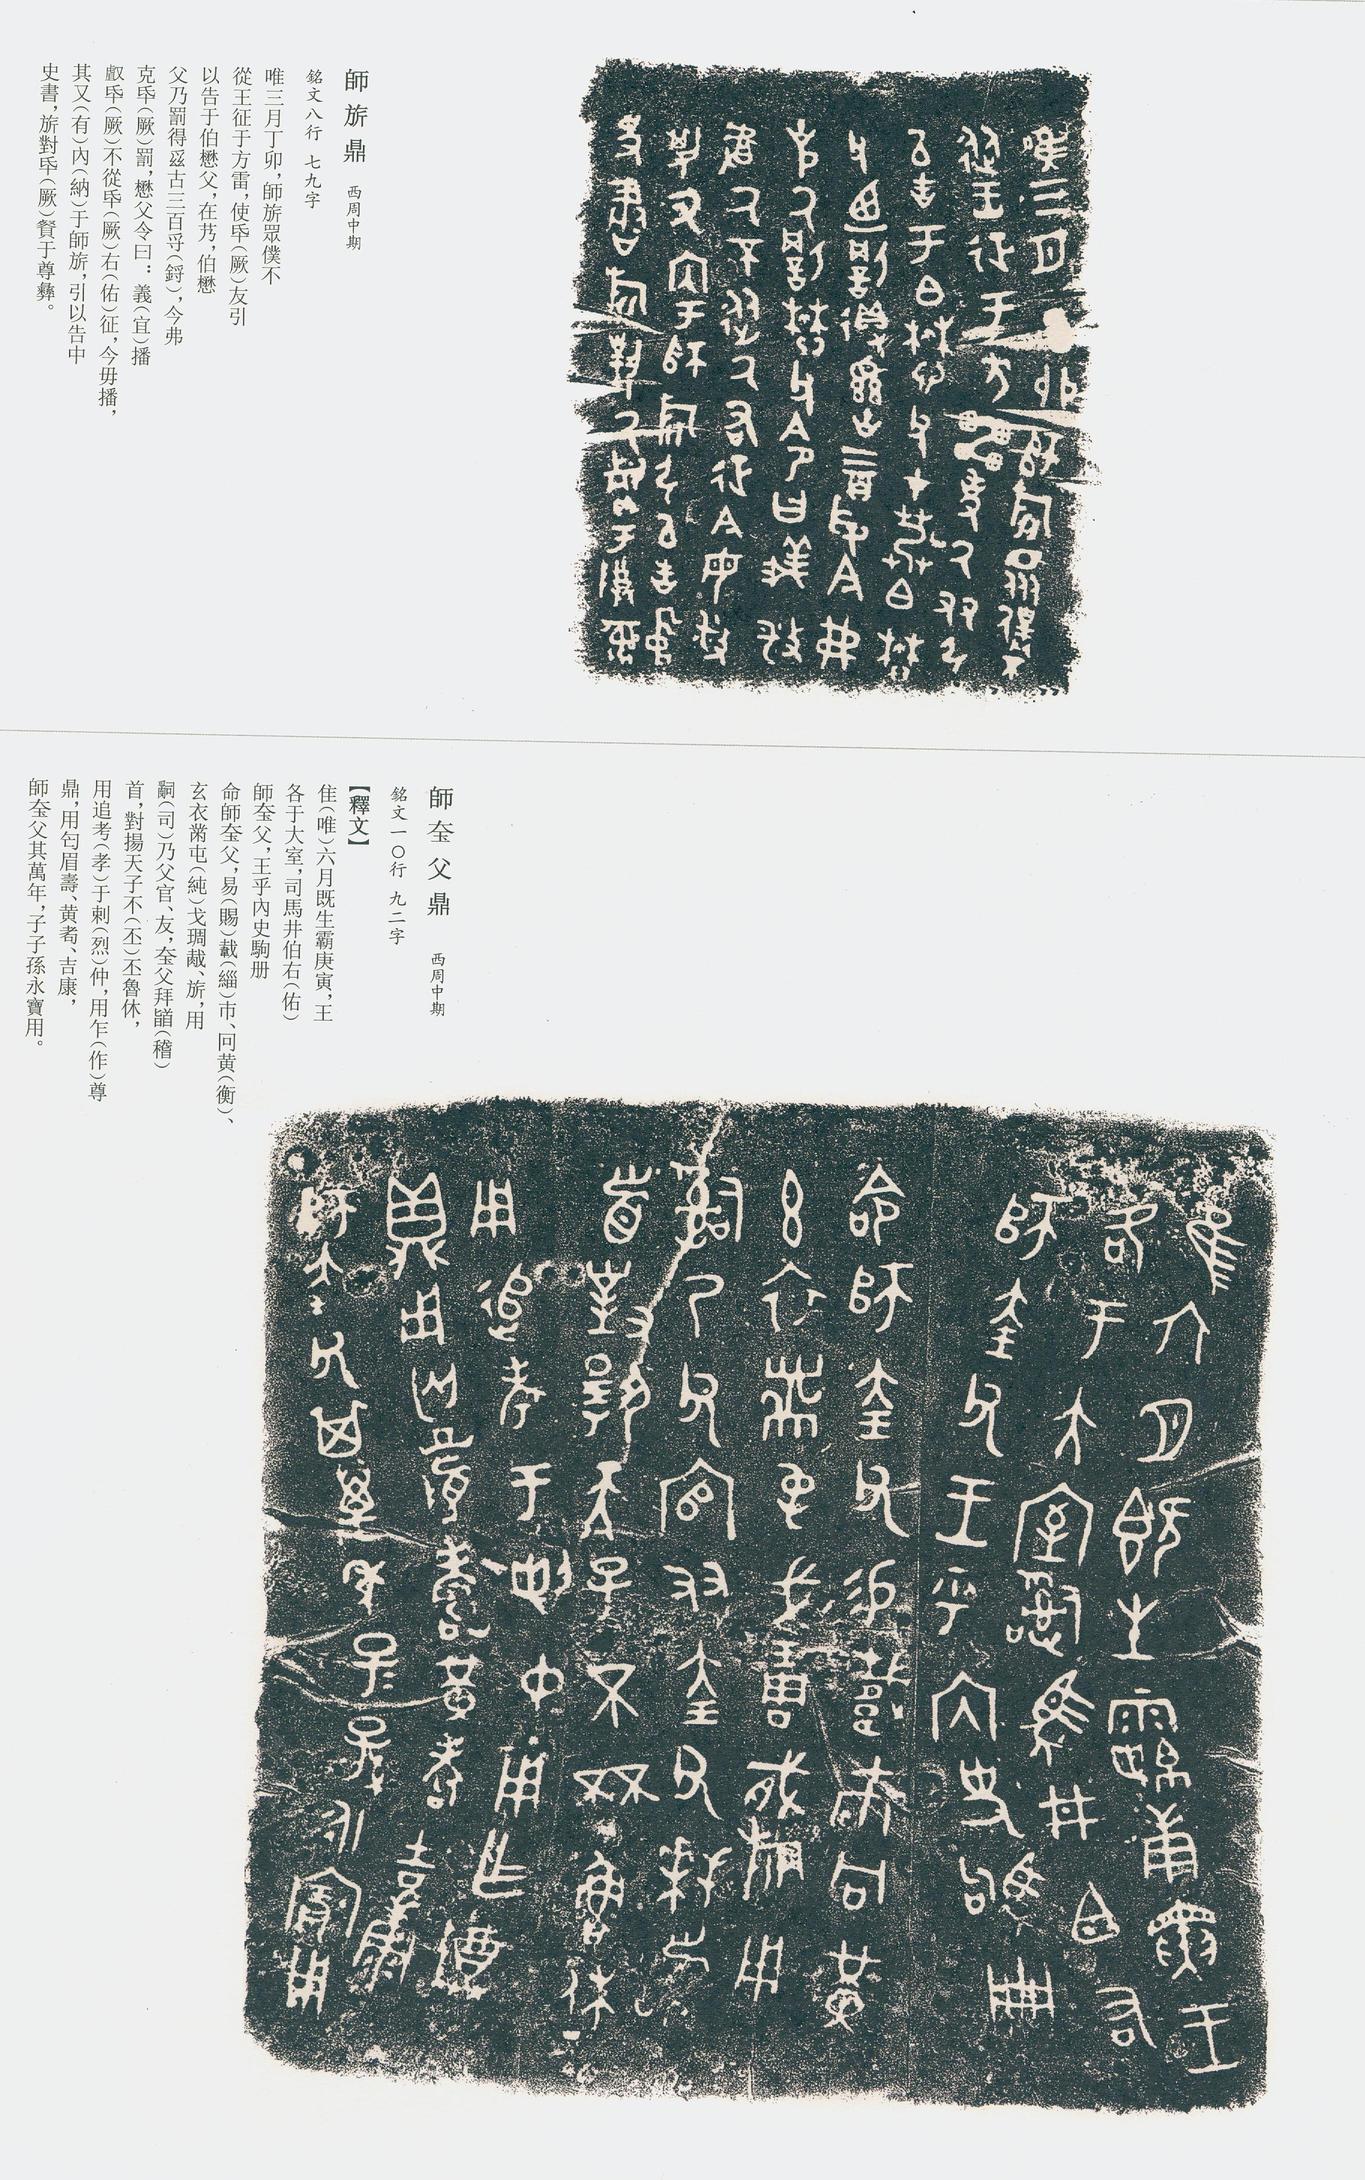 師旂鼎 西周中期
銘文八行 七九字
唯三月丁卯，師旂眾僕不
從王征于方雷，使氒（厥）友引
以告于伯懋父，在艿，伯懋
父乃罰得𢆶古三百寽（鋝），今弗
克氒（厥）罰，懋父令曰：義（宜）播
𠭯氒（厥）不從氒（厥）右（佑）征，今毋播，
其又（有）內（納）于師旂，引以告中
史書，旂對氒（厥）𧶠于尊彝。
師𡘇父鼎 西周中期
銘文一〇行 九二字
【釋文】
隹（唯）六月既生霸庚寅，王
各于大室，司馬井伯右（佑）
師𡘇父，王乎內史駒册
命師𡘇父，易（賜）𩎟（緇）巿、冋黃（衡）、
玄衣黹屯（純）戈琱胾、旂，用
嗣（司）乃父官、友，𡘇父拜䭫（稽）
首，對揚天子不（丕）㔻魯休，
用追考（孝）于剌（烈）仲，用乍（作）尊
鼎，用匄眉壽、黃耇、吉康，
師𡘇父其萬年，子子孫永寶用。